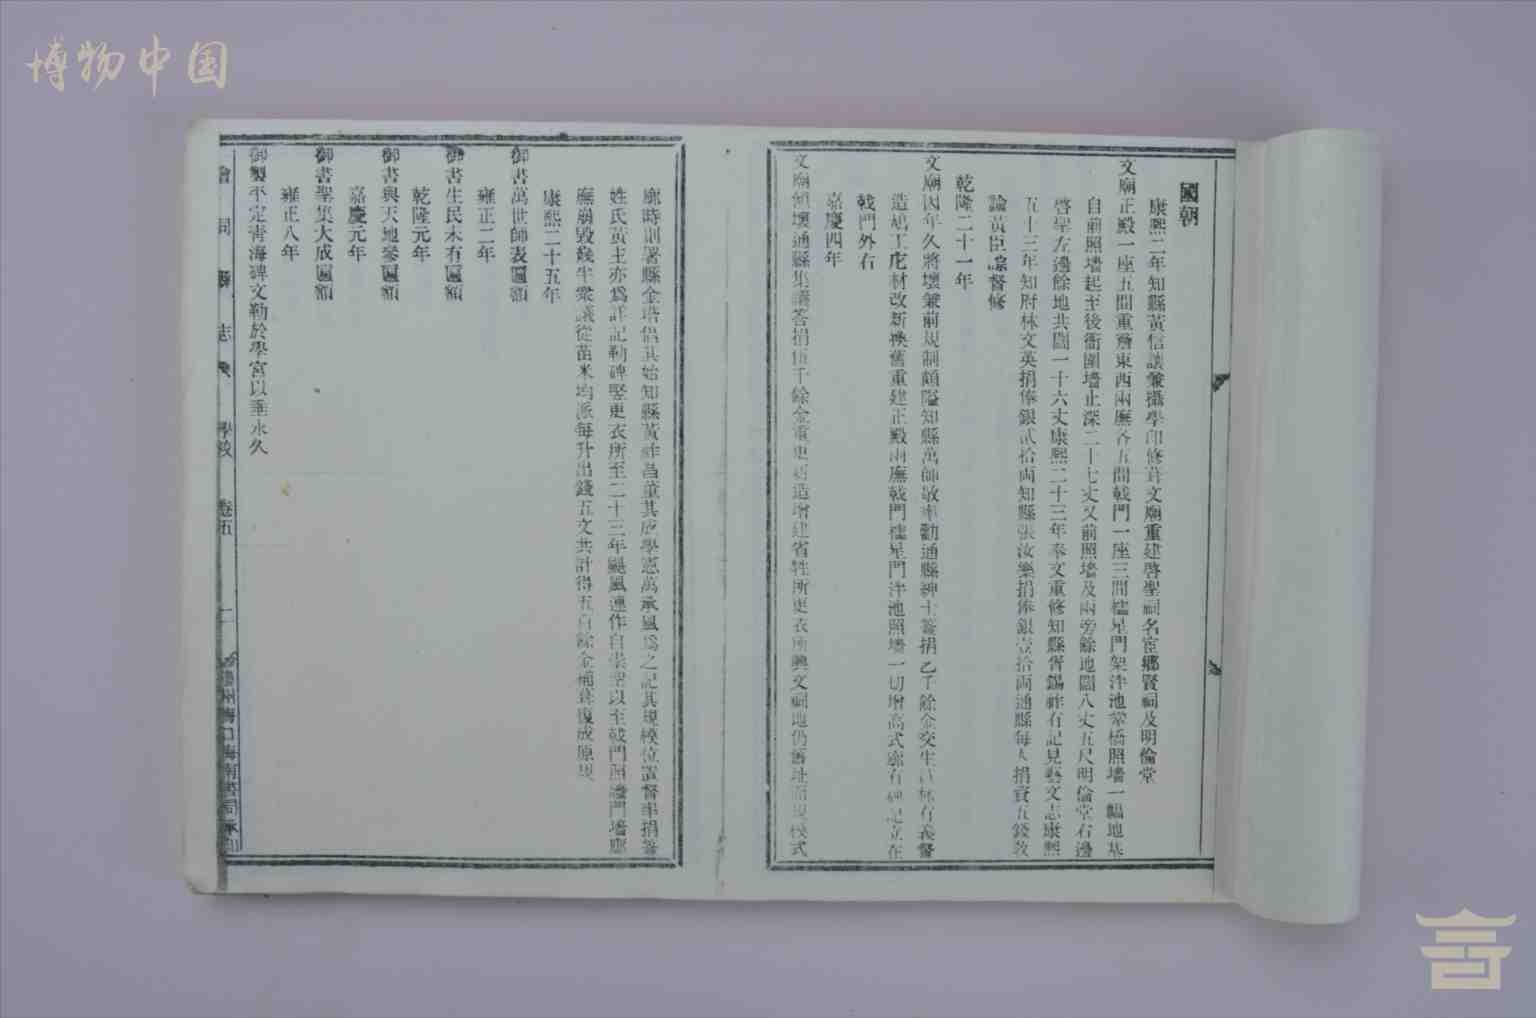 博物中国
國朝
康熙二年知縣黃信讓兼攝學印修葺文廟重建啓聖祠名宦鄉賢祠及明倫堂
文廟正殿一座五間重簷東西兩廡各五間戟門一座三間櫺星門架泮池拱橋照墻一幅地基
自前照墻起至後衙圍墻止深二十七丈又前照墻及兩旁餘地闊八丈五尺明倫堂右邊
啓聖左邊餘地共闊一十六丈康熙二十三年奉文重修知縣胥錫祚有記見藝文志康熙
五十三年知府林文英捐俸銀貳拾両知縣張汝樂捐俸銀壹拾両通縣每人捐資五錢教
諭黃臣 督修
乾隆二十一年
文廟因年久將壞兼前規制頗隘知縣萬師敬率勸通縣紳士簽捐 千餘金交生 林有義督
造鳩工庀材改新換舊重建正殿両廡戟門櫺星門泮池照墻一切增高式廓有碑記立在
戟門外右
嘉慶四年
文廟傾壞通縣集議簽捐伍千餘金重更 造增建省牲所更衣所興文祠地仍舊址而規模式
廓時則署縣金 倡其始知縣黃祚昌董其成學憲萬承風爲之記其規模位置督率捐簽
姓氏黃主亦爲詳記勒碑竪更衣所至二十三年颶風連作自崇聖以至戟門照墻門墻廊
廡崩毀幾半衆議從苗米均派每升出錢五文共計得五百餘金補葺復成原規
康熙二十五年
御書萬世師表匾額
雍正二年
御書生民未有匾額
乾隆元年
御書與天地參匾額
嘉慶元年
御書聖集大成匾額
雍正八年
御製平定青海碑文勒於學宮以垂永久
會同縣志 學校 卷五 二 瓊州海口海南書局承印